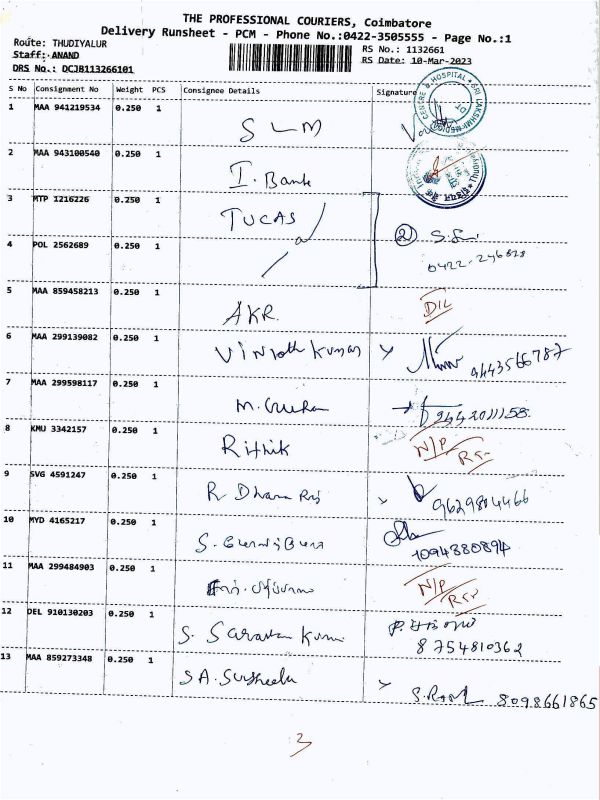 THE PROFESSIONAL COURIERS, Coimbatore
Delivery Runsheet - PCM - Phone No.:0422-3505555 - Page No.:1
Route: THUDIYALUR
RS No.: 1132661
Staff: ANAND
RS Date: 10-Mar-2023
DRS No.: DCJB113266101
S No Consignment No Weight PCS Consignee Details Signature
1 MAA 941219534 0.250 1
SLM
2 MAA 943100540 0.250 1
I. Bank
3 MTP 1216226 0.250 1
TUCAS
4 POL 2562689 0.250 1
2
0422-246828
5 MAA 859458213 0.250 1
AKR
D/L
6 MAA 299139082 0.250 1
Vinoth Kumar
9443566787
7 MAA 299598117 0.250 1
9442011158
8 KMU 3342157 0.250 1
Rithik
N/P
9 SVG 4591247 0.250 1
R. Dhana Raj
9629804466
10 MYD 4165217 0.250 1
1094380894
11 MAA 299484903 0.250 1
N/P
12 DEL 910130203 0.250 1
S. Saravan Kumar
8754810362
13 MAA 859273348 0.250 1
SA. Susheela
8098661865
3